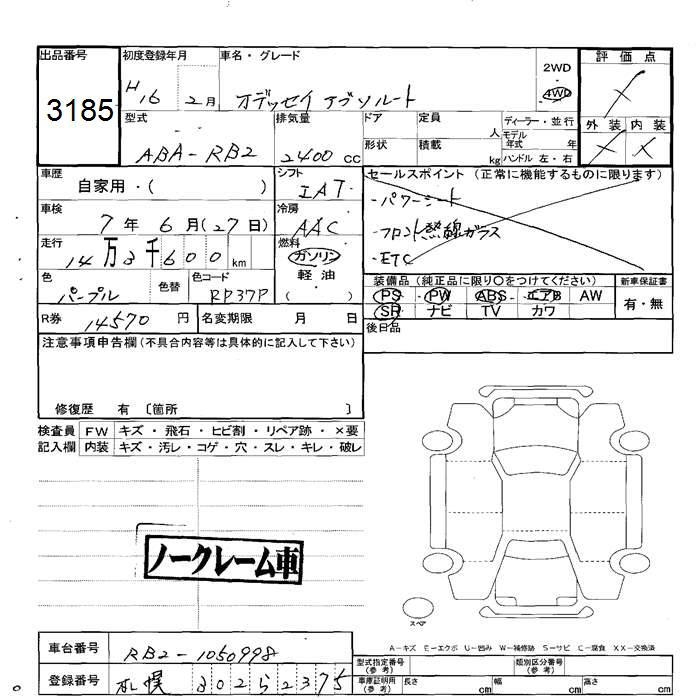 出品番号 初度登録年月 車名・グレード 2WD 評価点
3185 H16 2月 オデッセイ アブソルート 4WD
型式 排気量 ドア 定員 人 ディーラー・並行 外装 内装
モデル年式 年
ABA-RB2 2400 cc 形状 積載 kg ハンドル 左・右
車歴 自家用・( ) シフト IAT セールスポイント (正常に機能するものに限ります)
車検 7年 6月(27日) 冷房 AAC ・パワーシート
走行 14万3千600km 燃料 ガソリン ・フロント熱線ガラス
軽油 ・ETC
色 パープル 色替 色コード RP37P ( ) 装備品 (純正品に限り○をつけてください) 新車保証書
PS ・ PW ・ ABS ・ エアB AW 有・無
SR ナビ TV カワ
R券 14570 円 名変期限 月 日 後日品
注意事項申告欄(不具合内容等は具体的に記入して下さい)
修復歴 有 〔箇所 〕
検査員 FW キズ・飛石・ヒビ割・リペア跡・×要
記入欄 内装 キズ・汚レ・コゲ・穴・スレ・キレ・破レ
ノークレーム車
スペア
A-キズ E-エクボ U-凹み W-補修跡 S-サビ C-腐食 XX-交換済
車台番号 RB2-1050998
型式指定番号(参考) 類別区分番号(参考)
登録番号 札幌 302 ら 2375
車庫証明用(参考) 長さ cm 幅 cm 高さ cm